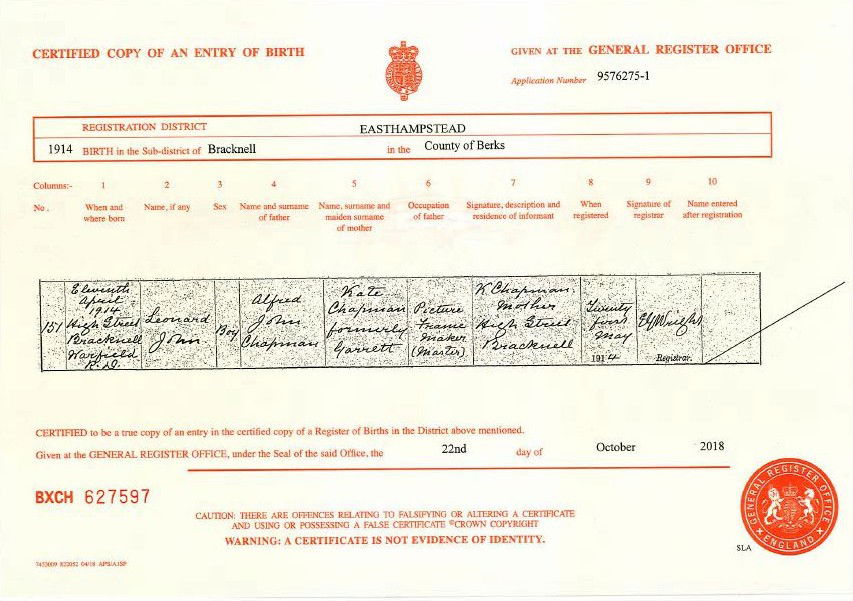 CERTIFIED COPY OF AN ENTRY OF BIRTH
GIVEN AT THE GENERAL REGISTER OFFICE
Application Number 9576275-1
REGISTRATION DISTRICT EASTHAMPSTEAD
1914 BIRTH in the Sub-district of Bracknell in the County of Berks
Columns:- 1 2 3 4 5 6 7 8 9 10
No. When and where born Name, if any Sex Name and surname of father Name, surname and maiden surname of mother Occupation of father Signature, description and residence of informant When registered Signature of registrar Name entered after registration
151
Eleventh
April
1914
High Street
Bracknell
Warfield
R.D.
Leonard
John
Boy
Alfred
John
Chapman
Kate
Chapman
formerly
Garrett
Picture
Frame
Maker
(Master)
K Chapman
Mother
High Street
Bracknell
Twenty
first
May
1914
Wright
Registrar.
CERTIFIED to be a true copy of an entry in the certified copy of a Register of Births in the District above mentioned.
Given at the GENERAL REGISTER OFFICE, under the Seal of the said Office, the 22nd day of October 2018
BXCH 627597
CAUTION: THERE ARE OFFENCES RELATING TO FALSIFYING OR ALTERING A CERTIFICATE
AND USING OR POSSESSING A FALSE CERTIFICATE ©CROWN COPYRIGHT
WARNING: A CERTIFICATE IS NOT EVIDENCE OF IDENTITY.
GENERAL REGISTER OFFICE
ENGLAND
SLA
04/18